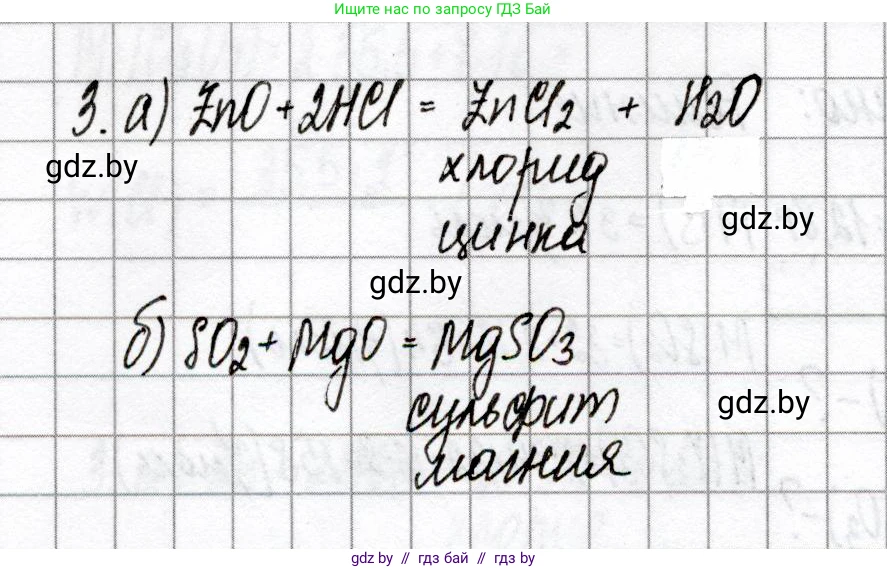 Ищите нас по запросу ГДЗ Бай
3. а) ZnO + 2HCl = ZnCl2 + H2O
gdz.by
хлорид
gdz.by
цинка
gdz.by
б) SO2 + MgO = MgSO3
сульфит
gdz.by
магния
gdz by // гдз бай // гдз by